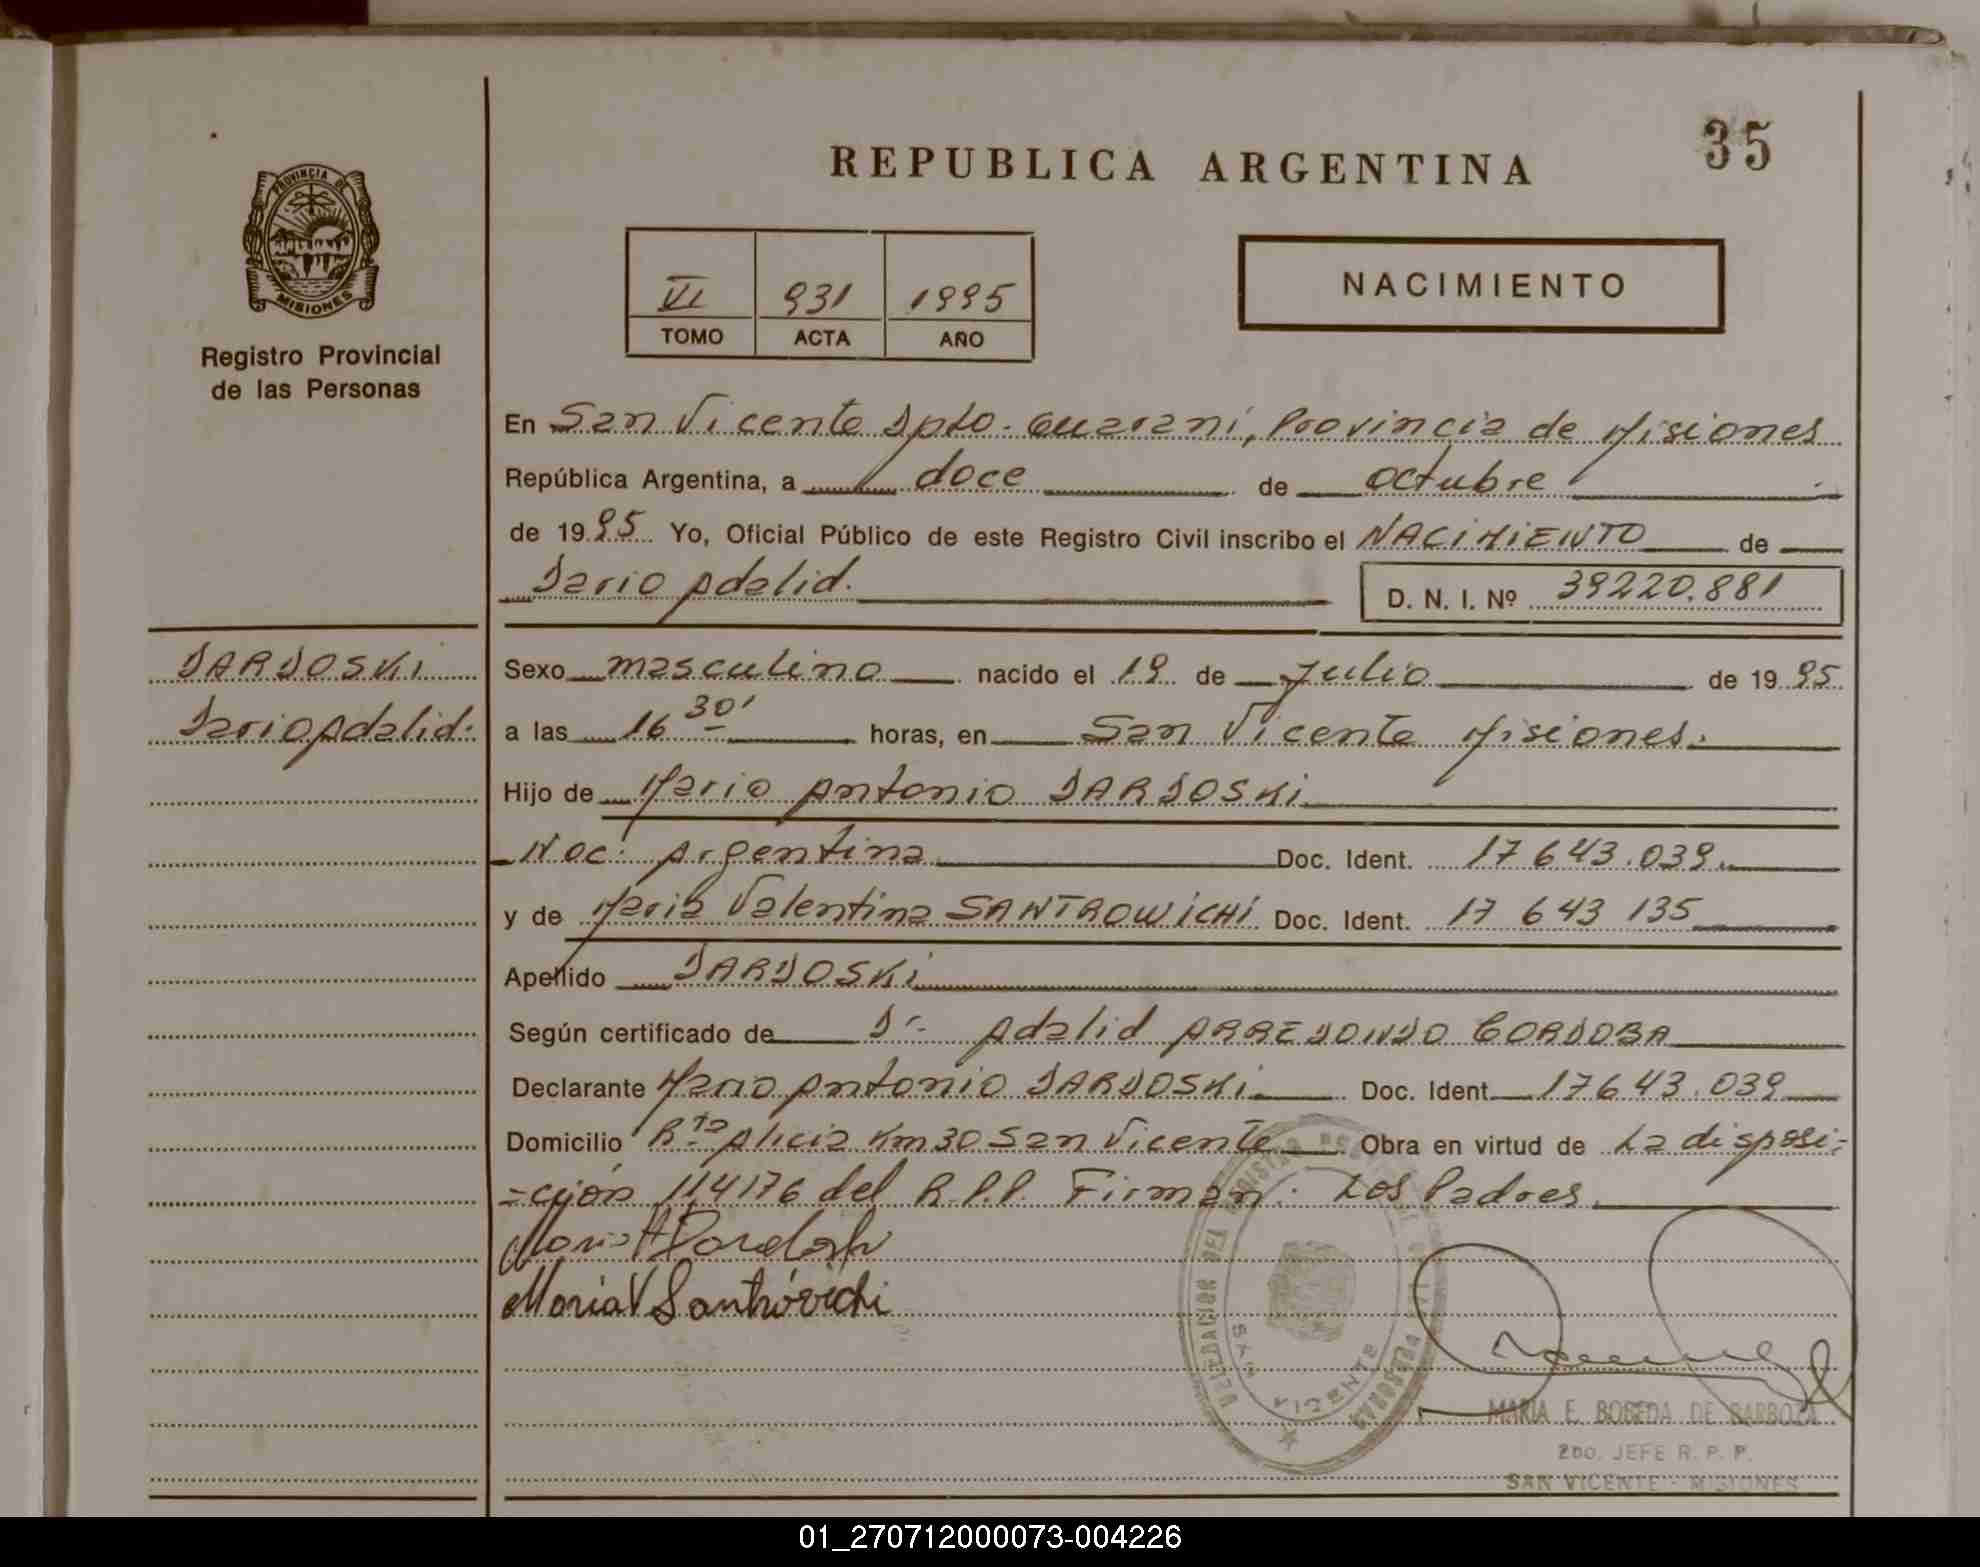 35
REPUBLICA ARGENTINA
PROVINCIA DE
MISIONES
Registro Provincial
de las Personas
VI 931 1995
TOMO ACTA AÑO
NACIMIENTO
En San Vicente Dpto. Guaraní, Provincia de Misiones
República Argentina, a doce de octubre
de 1995 Yo, Oficial Público de este Registro Civil inscribo el NACIMIENTO de
Dario Adalid. D. N. I. Nº 39220.881
DARDOSKI
Dario Adalid.
Sexo masculino nacido el 19 de Julio de 1995
a las 16 30' horas, en San Vicente Misiones.
Hijo de Mario Antonio DARDOSKI
Nac: Argentina Doc. Ident. 17 643.039
y de Maria Valentina SANTROWICHI Doc. Ident. 17 643 135
Apellido DARDOSKI
Según certificado de Dr. Adalid ARREDONDO CORDOBA
Declarante Mario Antonio DARDOSKI Doc. Ident. 17643.039
Domicilio Rta Alicia Km 30 San Vicente Obra en virtud de La disposi=
=ción 114176 del R.P.P. Firman: Los Padres
Mario A Dardoski
Maria V Santrovichi
SAN VICENTE
MARIA E. BOBEDA DE BARBOZA
2DO. JEFE R. P. P.
SAN VICENTE - MISIONES
01_270712000073-004226